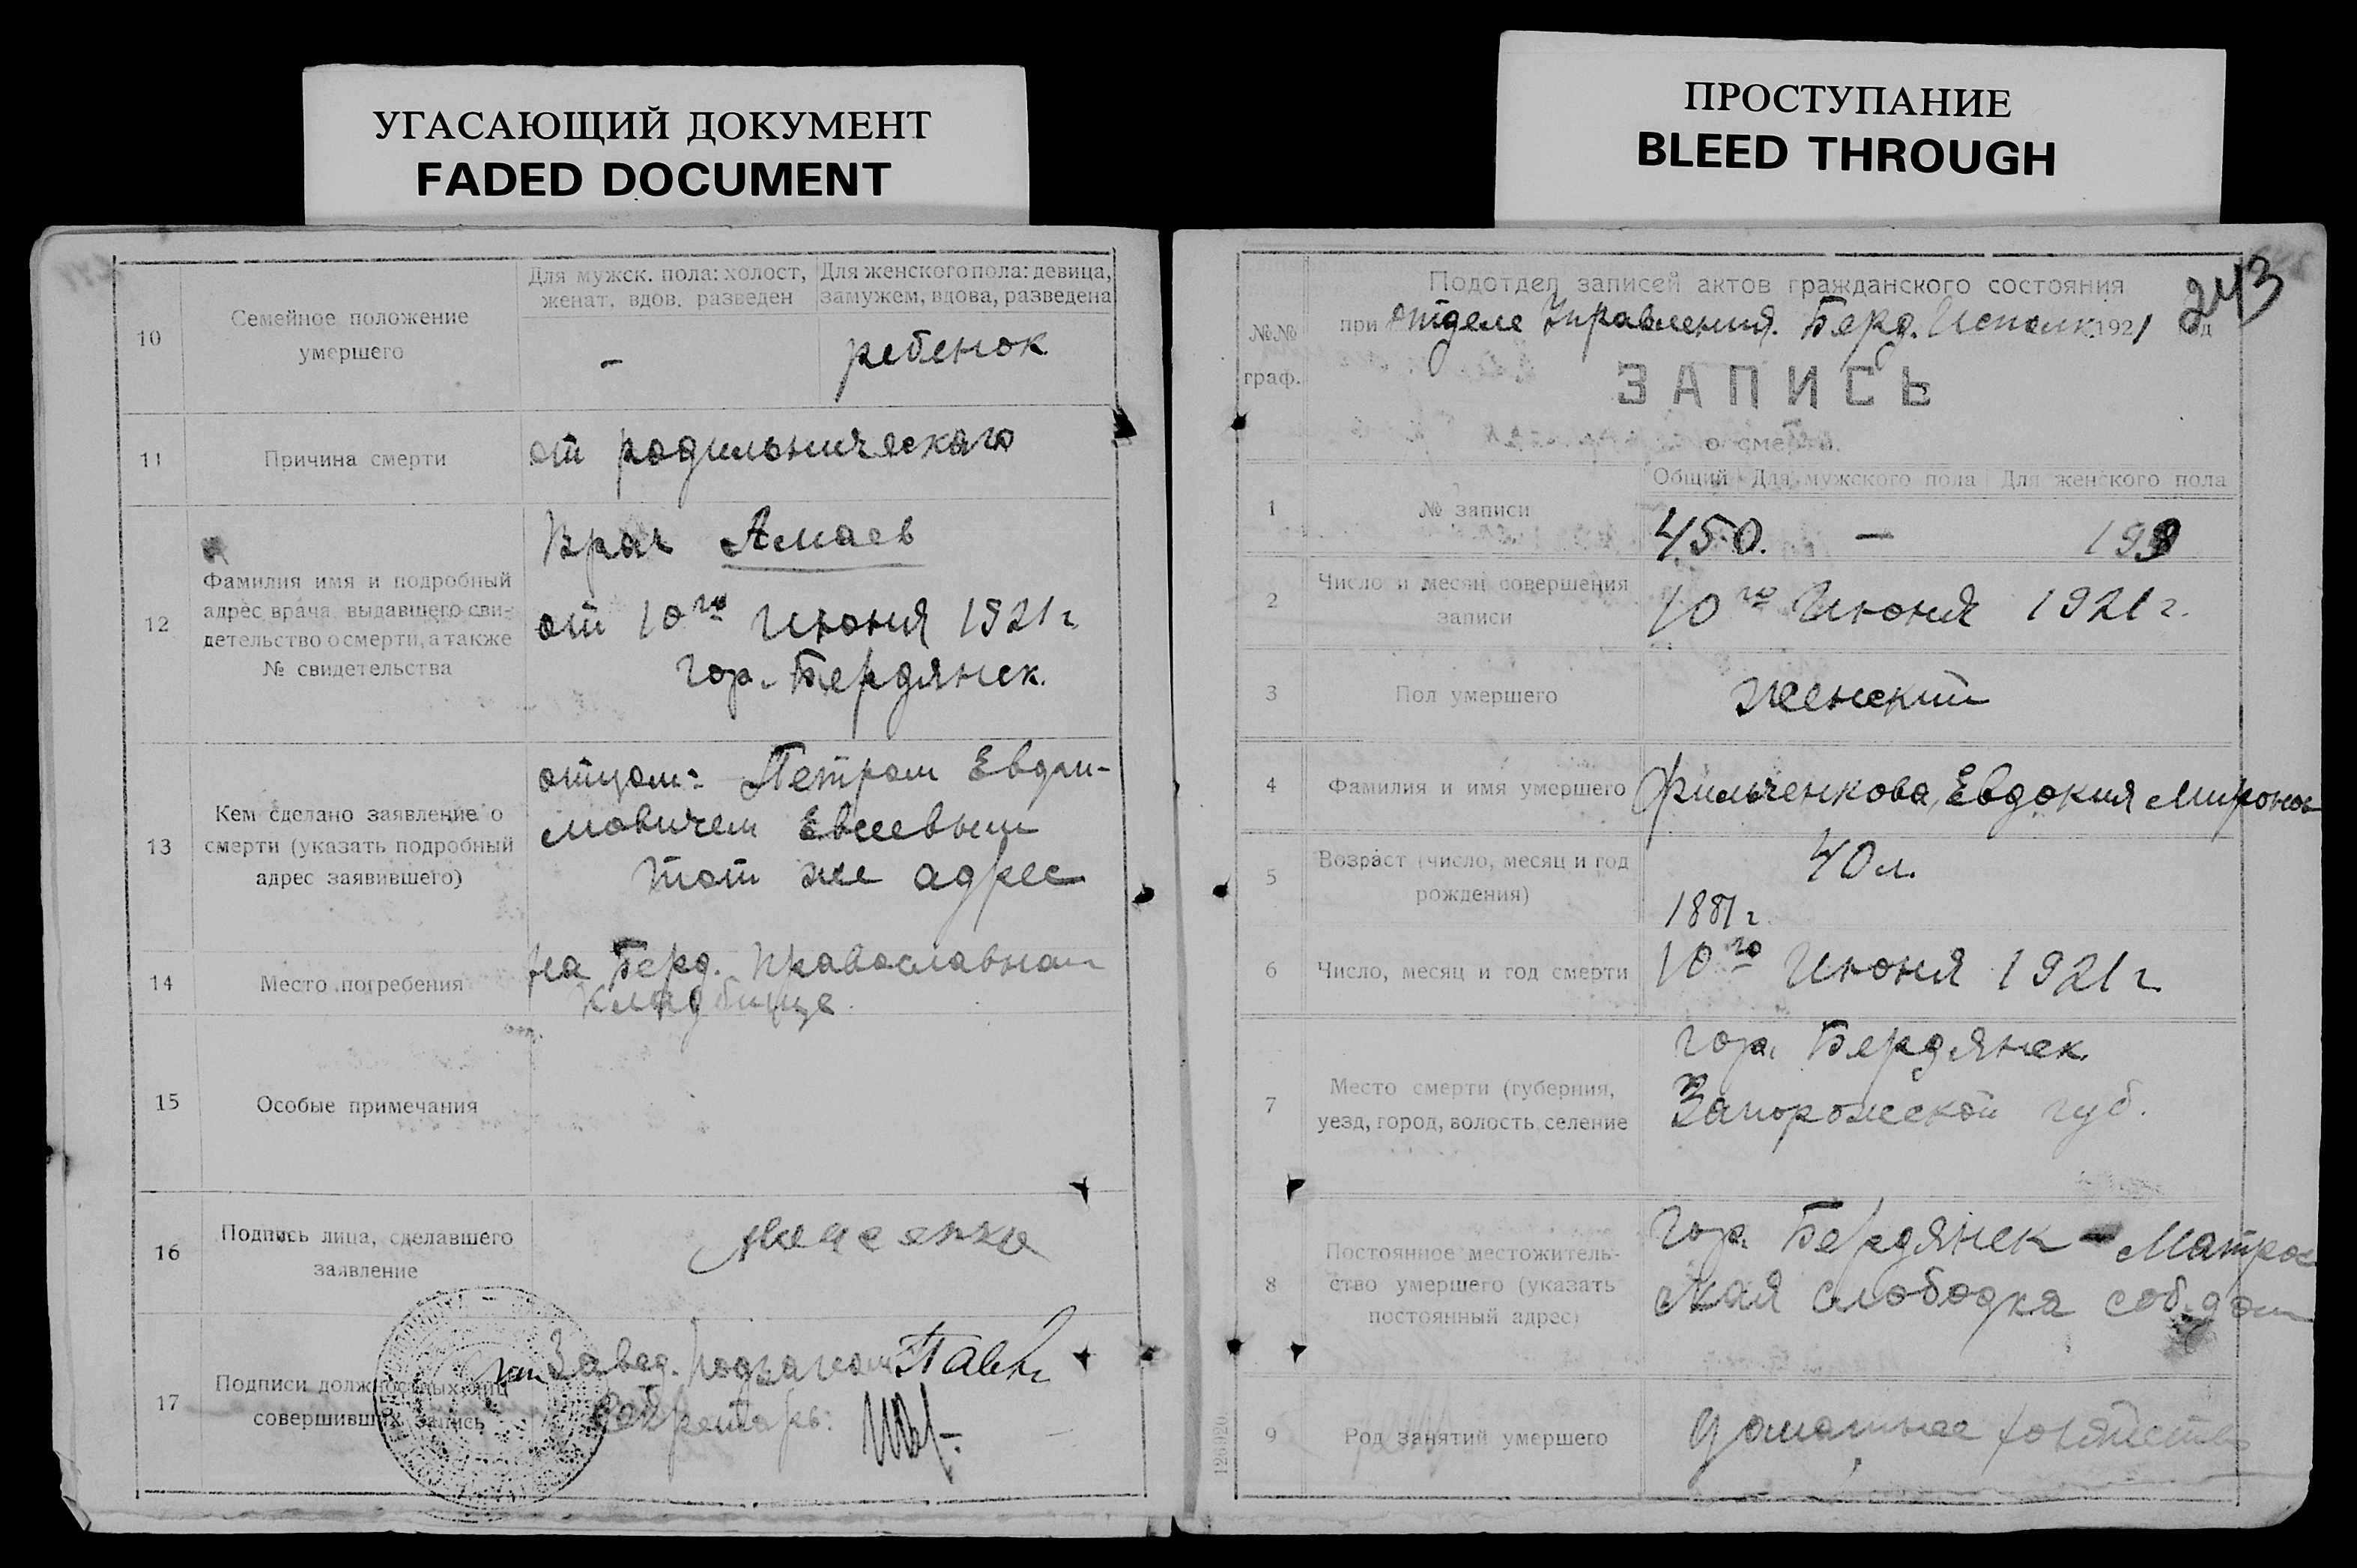 УГАСАЮЩИЙ ДОКУМЕНТ
FADED DOCUMENT
ПРОСТУПАНИЕ
BLEED THROUGH
10
Семейное положение
умершего
Для мужск. пола: холост,
женат, вдов, разведен
Для женского пола: девица,
замужем, вдова, разведена
–
ребенок
11
Причина смерти
от родильническаго
12
Фамилия имя и подробный
адрес врача, выдавшего сви-
детельство о смерти, а также
№ свидетельства
Врач Амаев
от 10го Июня 1921 г
гор. Бердянск.
13
Кем сделано заявление о
смерти (указать подробный
адрес заявившего)
отцом: Петром Евдки-
мовичем Евсеевым
тот же адрес
14
Место погребения
на Берд. православном
кладбище.
15
Особые примечания
16
Подпись лица, сделавшего
заявление
17
Подписи должностных лиц
совершивших запись
Завед.
Секретарь:
243
№№
граф.
Подотдел записей актов гражданского состояния
при Отделе Управления. Берд. Исполк. 1921 год
ЗАПИСЬ
о смерти.
Общий Для мужского пола Для женского пола
1
№ записи
450. —
2
Число и месяц совершения
записи
10го Июня 1921 г.
3
Пол умершего
Женский
4
Фамилия и имя умершего
Фильченкова, Евдокия Миронов
5
Возраст (число, месяц и год
рождения)
40 л.
1881 г
6
Число, месяц и год смерти
10го Июня 1921 г.
7
Место смерти (губерния,
уезд, город, волость, селение
гор. Бердянск.
Запорожской губ.
8
Постоянное местожитель-
ство умершего (указать
постоянный адрес)
Гор. Бердянск - Матрос
ская слободка соб. дом
9
Род занятий умершего
домашнее хозяйство
126920